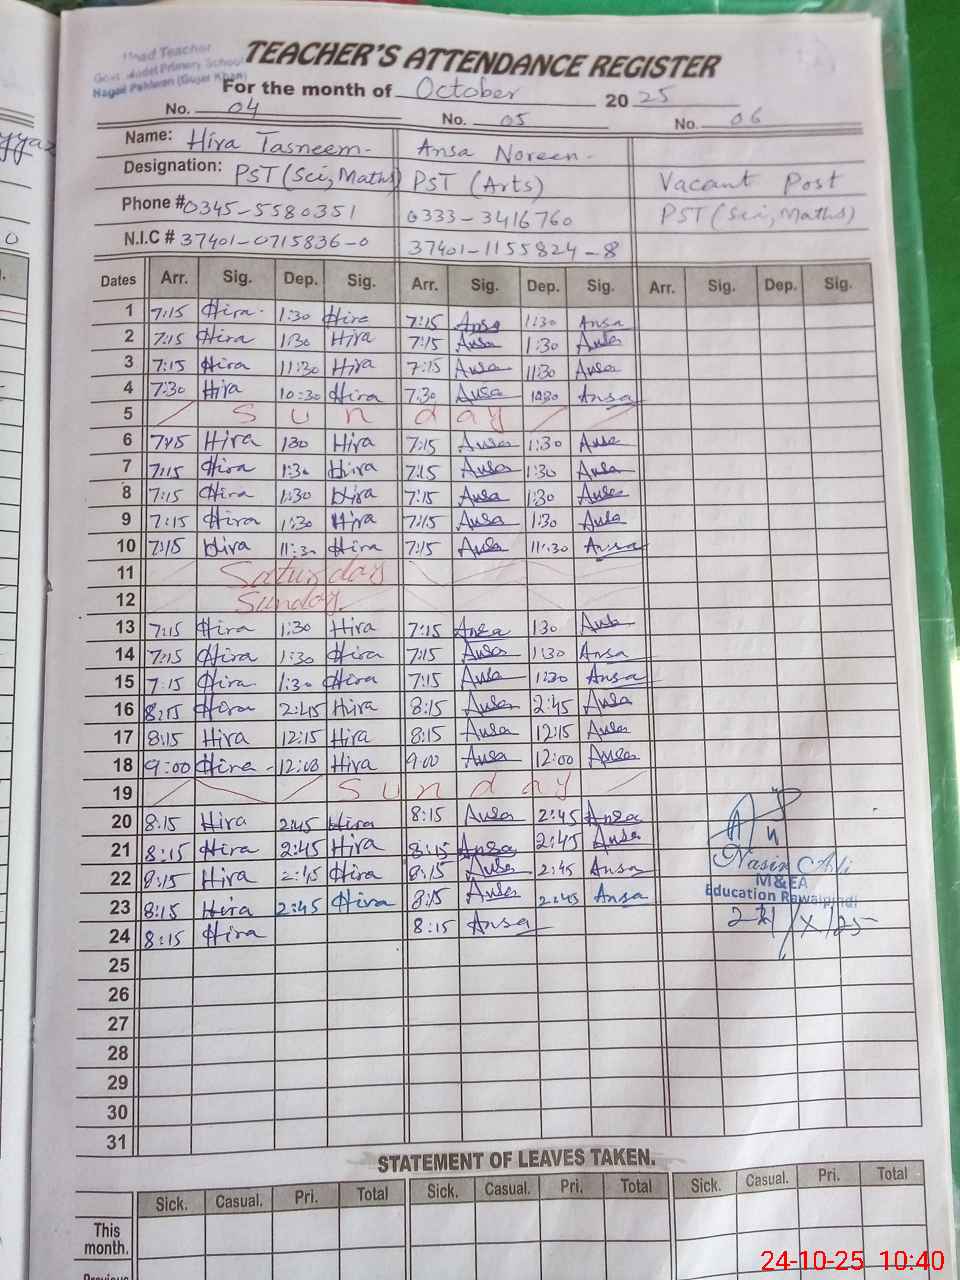 Head Teacher
Govt. Model Primary School
(Gujar Khan)
TEACHER'S ATTENDANCE REGISTER
For the month of October 2025
No. 04 No. 05 No. 06
Name: Hira Tasneem- Ansa Noreen-
Designation: PST (Sci, Maths) PST (Arts) Vacant Post
Phone # 0345-5580351 0333-3416760 PST (Sci, Maths)
N.I.C # 37401-0715836-0 37401-1155824-8
Dates Arr. Sig. Dep. Sig. Arr. Sig. Dep. Sig. Arr. Sig. Dep. Sig.
1 7:15 Hira 1:30 Hira 7:15 Ansa 1:30 Ansa
2 7:15 Hira 1:30 Hira 7:15 Ansa 1:30 Ansa
3 7:15 Hira 11:30 Hira 7:15 Ansa 11:30 Ansa
4 7:30 Hira 10:30 Hira 7:30 Ansa 10:30 Ansa
5 Sunday
6 7:15 Hira 130 Hira 7:15 Ansa 1:30 Ansa
7 7:15 Hira 1:30 Hira 7:15 Ansa 1:30 Ansa
8 7:15 Hira 1:30 Hira 7:15 Ansa 1:30 Ansa
9 7:15 Hira 1:30 Hira 7:15 Ansa 1:30 Ansa
10 7:15 Hira 11:30 Hira 7:15 Ansa 11:30 Ansa
11 Saturday
12 Sunday.
13 7:15 Hira 1:30 Hira 7:15 Ansa 130 Ansa
14 7:15 Hira 1:30 Hira 7:15 Ansa 1:30 Ansa
15 7:15 Hira 1:30 Hira 7:15 Ansa 1:30 Ansa
16 8:15 Hira 2:45 Hira 8:15 Ansa 2:45 Ansa
17 8:15 Hira 12:15 Hira 8:15 Ansa 12:15 Ansa
18 9:00 Hira - 12:00 Hira 9:00 Ansa 12:00 Ansa
19 Sunday
20 8:15 Hira 2:45 Hira 8:15 Ansa 2:45 Ansa
21 8:15 Hira 2:45 Hira 8:15 Ansa 2:45 Ansa
22 8:15 Hira 2:45 Hira 8:15 Ansa 2:45 Ansa
23 8:15 Hira 2:45 Hira 8:15 Ansa 2:45 Ansa
24 8:15 Hira 8:15 Ansa
Nasir Ali
M&EA
Education Rawalpindi
/X/25
25
26
27
28
29
30
31
STATEMENT OF LEAVES TAKEN.
Sick. Casual. Pri. Total Sick. Casual. Pri. Total Sick. Casual. Pri. Total
This
month.
Previous
24-10-25 10:40